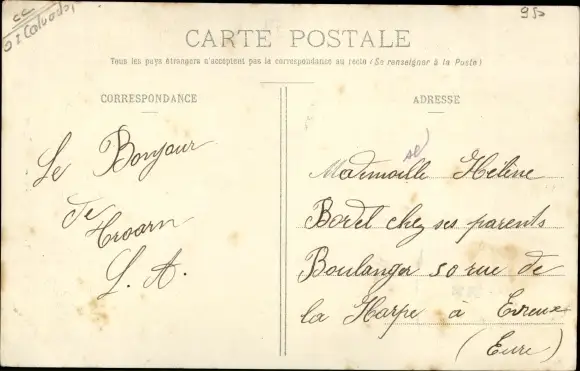 cc
01 Calvados
950
CARTE POSTALE
Tous les pays étrangers n'acceptent pas la correspondance au recto (Se renseigner à la Poste)
CORRESPONDANCE
Le Bonjour
de
Troarn
L. A.
ADRESSE
se
Mademoille Hélène
Bordel chez ses parents
Boulanger 50 rue de
la Harpe à Evreux
(Eure)